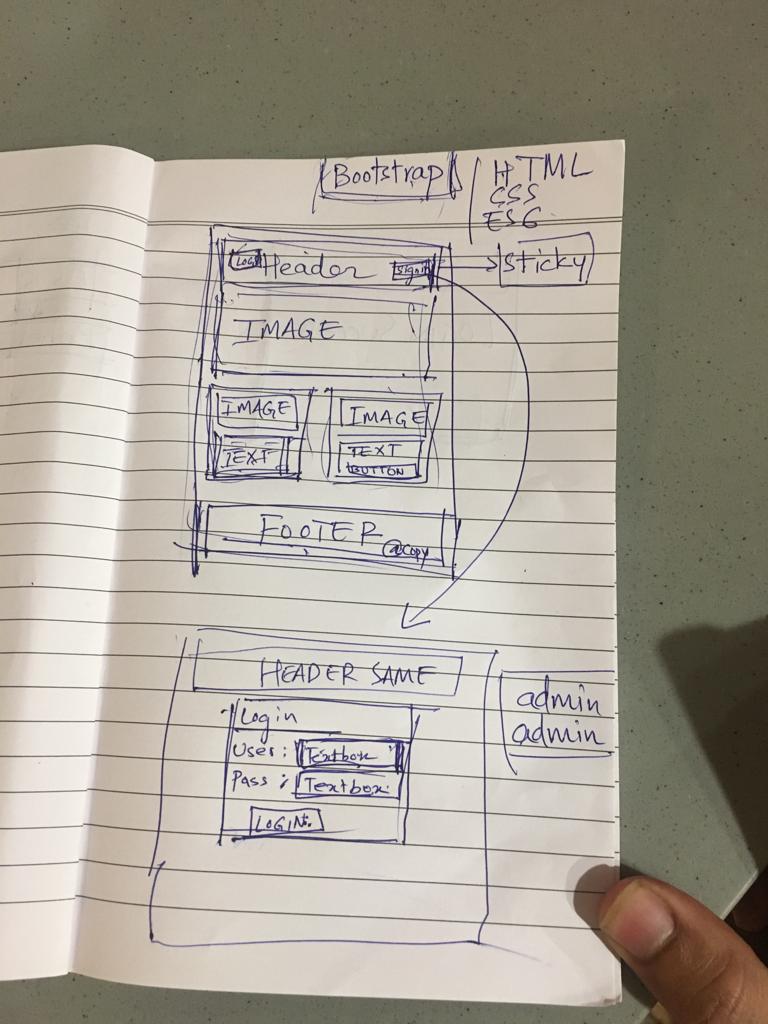 Bootstrap
HTML
CSS
ES6
Logo
Header
Sign in
sticky
IMAGE
IMAGE
IMAGE
TEXT
TEXT
BUTTON
FOOTER
@copy
HEADER SAME
Login
User: Textbox
Pass: Textbox
LOGIN
admin
admin